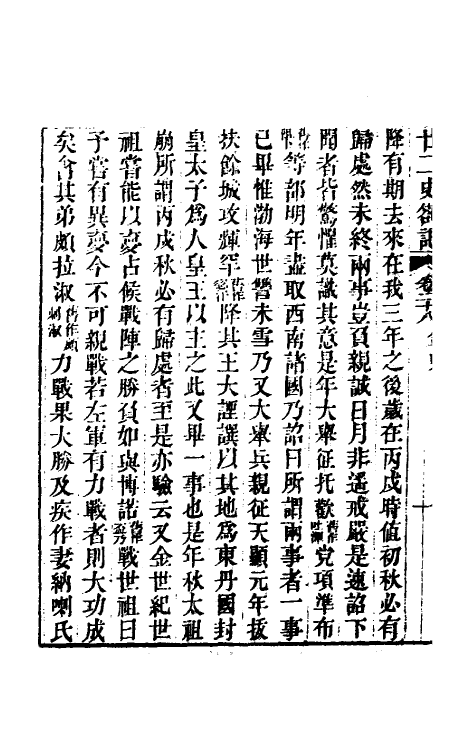 廿二史劄記 卷二十八 金史 十
降有期去來在我三年之後歲在丙戌時值初秋必有
歸處然未終兩事豈負親誠日月非遙戒嚴是速詔下
聞者皆驚懼莫識其意是年大舉征托歡舊作吐渾党項準布
舊作等部明年盡取西南諸國乃詔曰所謂兩事者一事
已畢惟渤海世讐未雪乃又大舉兵親征天顯元年拔
扶餘城攻輝罕舊作降其王大諲譔以其地爲東丹國封
皇太子爲人皇王以主之此又畢一事也是年秋太祖
崩所謂丙戌秋必有歸處者至是亦驗云又金世紀世
祖嘗能以夢占候戰陣之勝負如與博諾舊作戰世祖曰
予嘗有異夢今不可親戰若左軍有力戰者則大功成
矣令其弟頗拉淑舊作頗剌淑力戰果大勝及疾作妻納喇氏